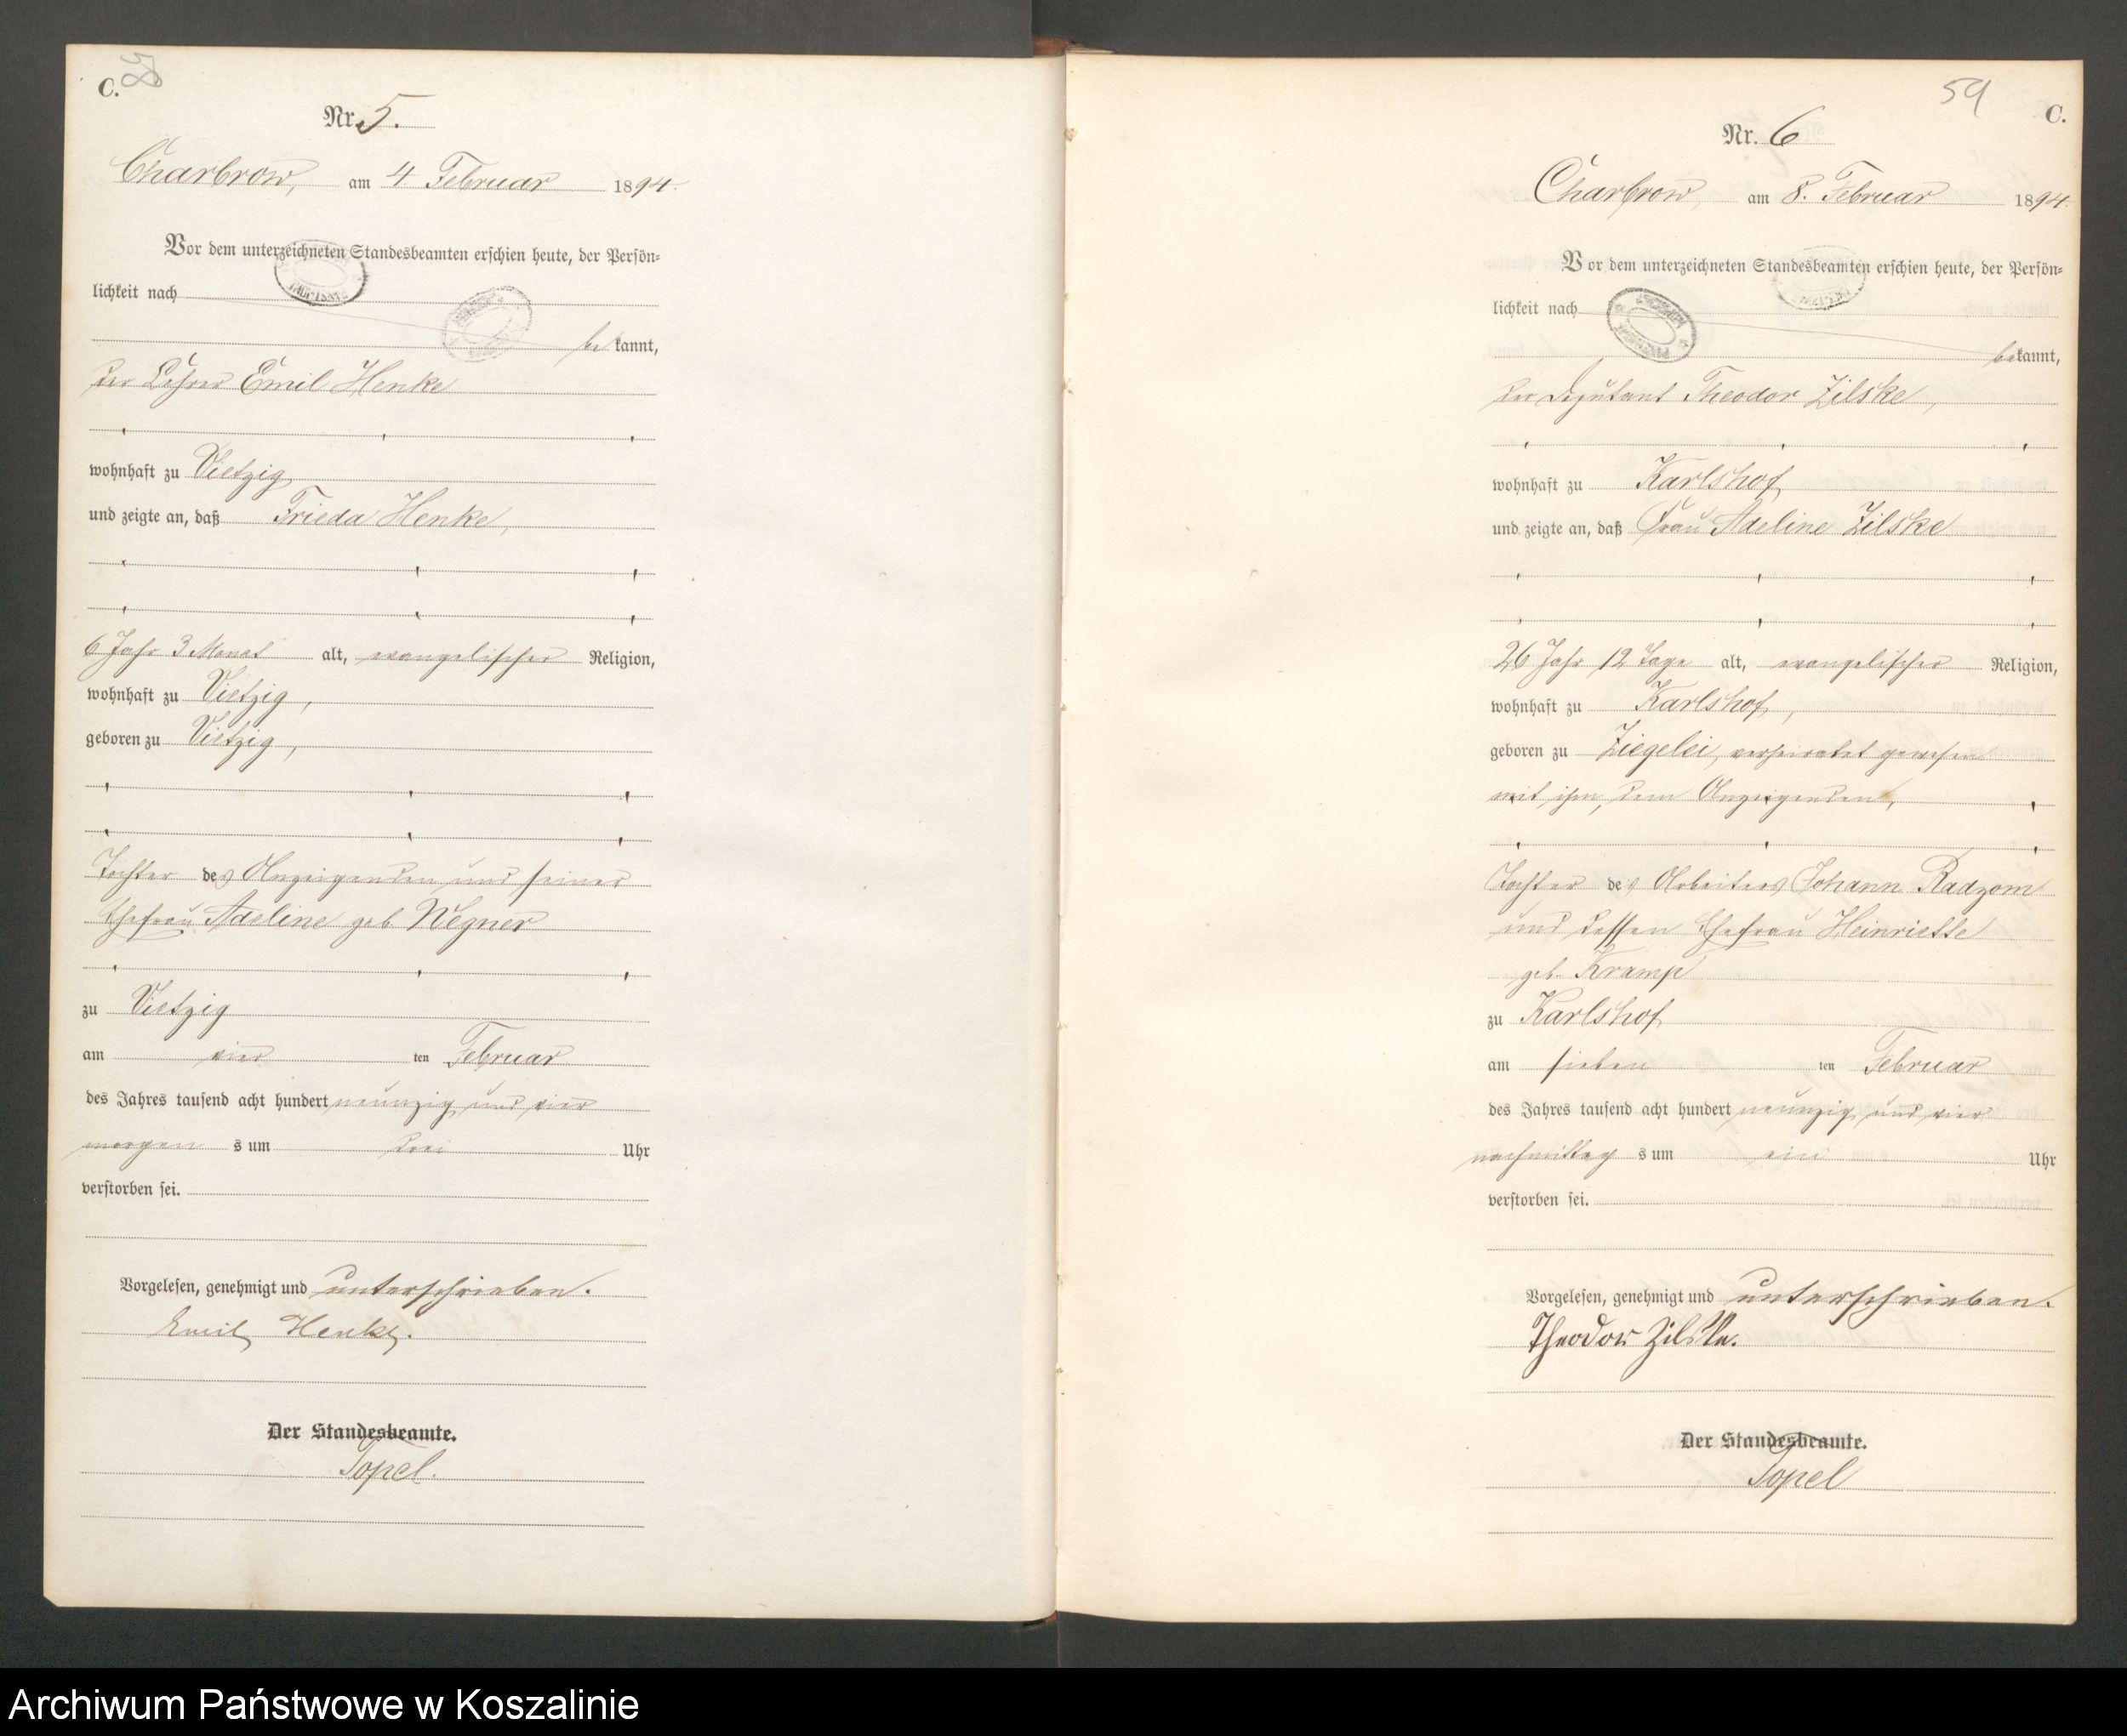 C.
Nr. 5.
Charbrow, am 4 Februar 1894.
Vor dem unterzeichneten Standesbeamten erschien heute, der Persön-
lichkeit nach
bekannt,
der Lehrer Emil Henke
wohnhaft zu Vietzig
und zeigte an, daß Frieda Henke,
6 Jahr 3 Monat alt, evangelischer Religion,
wohnhaft zu Vietzig,
geboren zu Vietzig,
Tochter des Anzeigenden und seiner
Ehefrau Adeline geb Wegner
zu Vietzig
am vier ten Februar
des Jahres tausend acht hundert neunzig und vier
morgen s um drei Uhr
verstorben sei.
Vorgelesen, genehmigt und unterschrieben.
Emil Henke.
Der Standesbeamte.
Topel.
59
C.
Nr. 6
Charbrow, am 8. Februar 1894.
Vor dem unterzeichneten Standesbeamten erschien heute, der Persön-
lichkeit nach
bekannt,
der Deputant Theodor Zilske,
wohnhaft zu Karlshof
und zeigte an, daß Frau Adeline Zilske
26 Jahr 12 Tage alt, evangelischer Religion,
wohnhaft zu Karlshof,
geboren zu Ziegelei, verheiratet gewesen
mit ihm, dem Anzeigenden,
Tochter des Arbeiters Johann Radzom
und dessen Ehefrau Heinriette
geb. Kramp
zu Karlshof
am sieben ten Februar
des Jahres tausend acht hundert neunzig und vier
nachmittag s um ein Uhr
verstorben sei.
Vorgelesen, genehmigt und unterschrieben.
Theodor Zilske.
Der Standesbeamte.
Topel
Archiwum Państwowe w Koszalinie